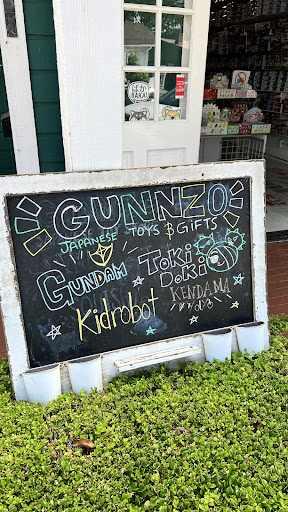 GUNNZO
JAPANESE TOYS & GIFTS
GUNDAM
TOKI
DOKI
Kidrobot
KENDAMA